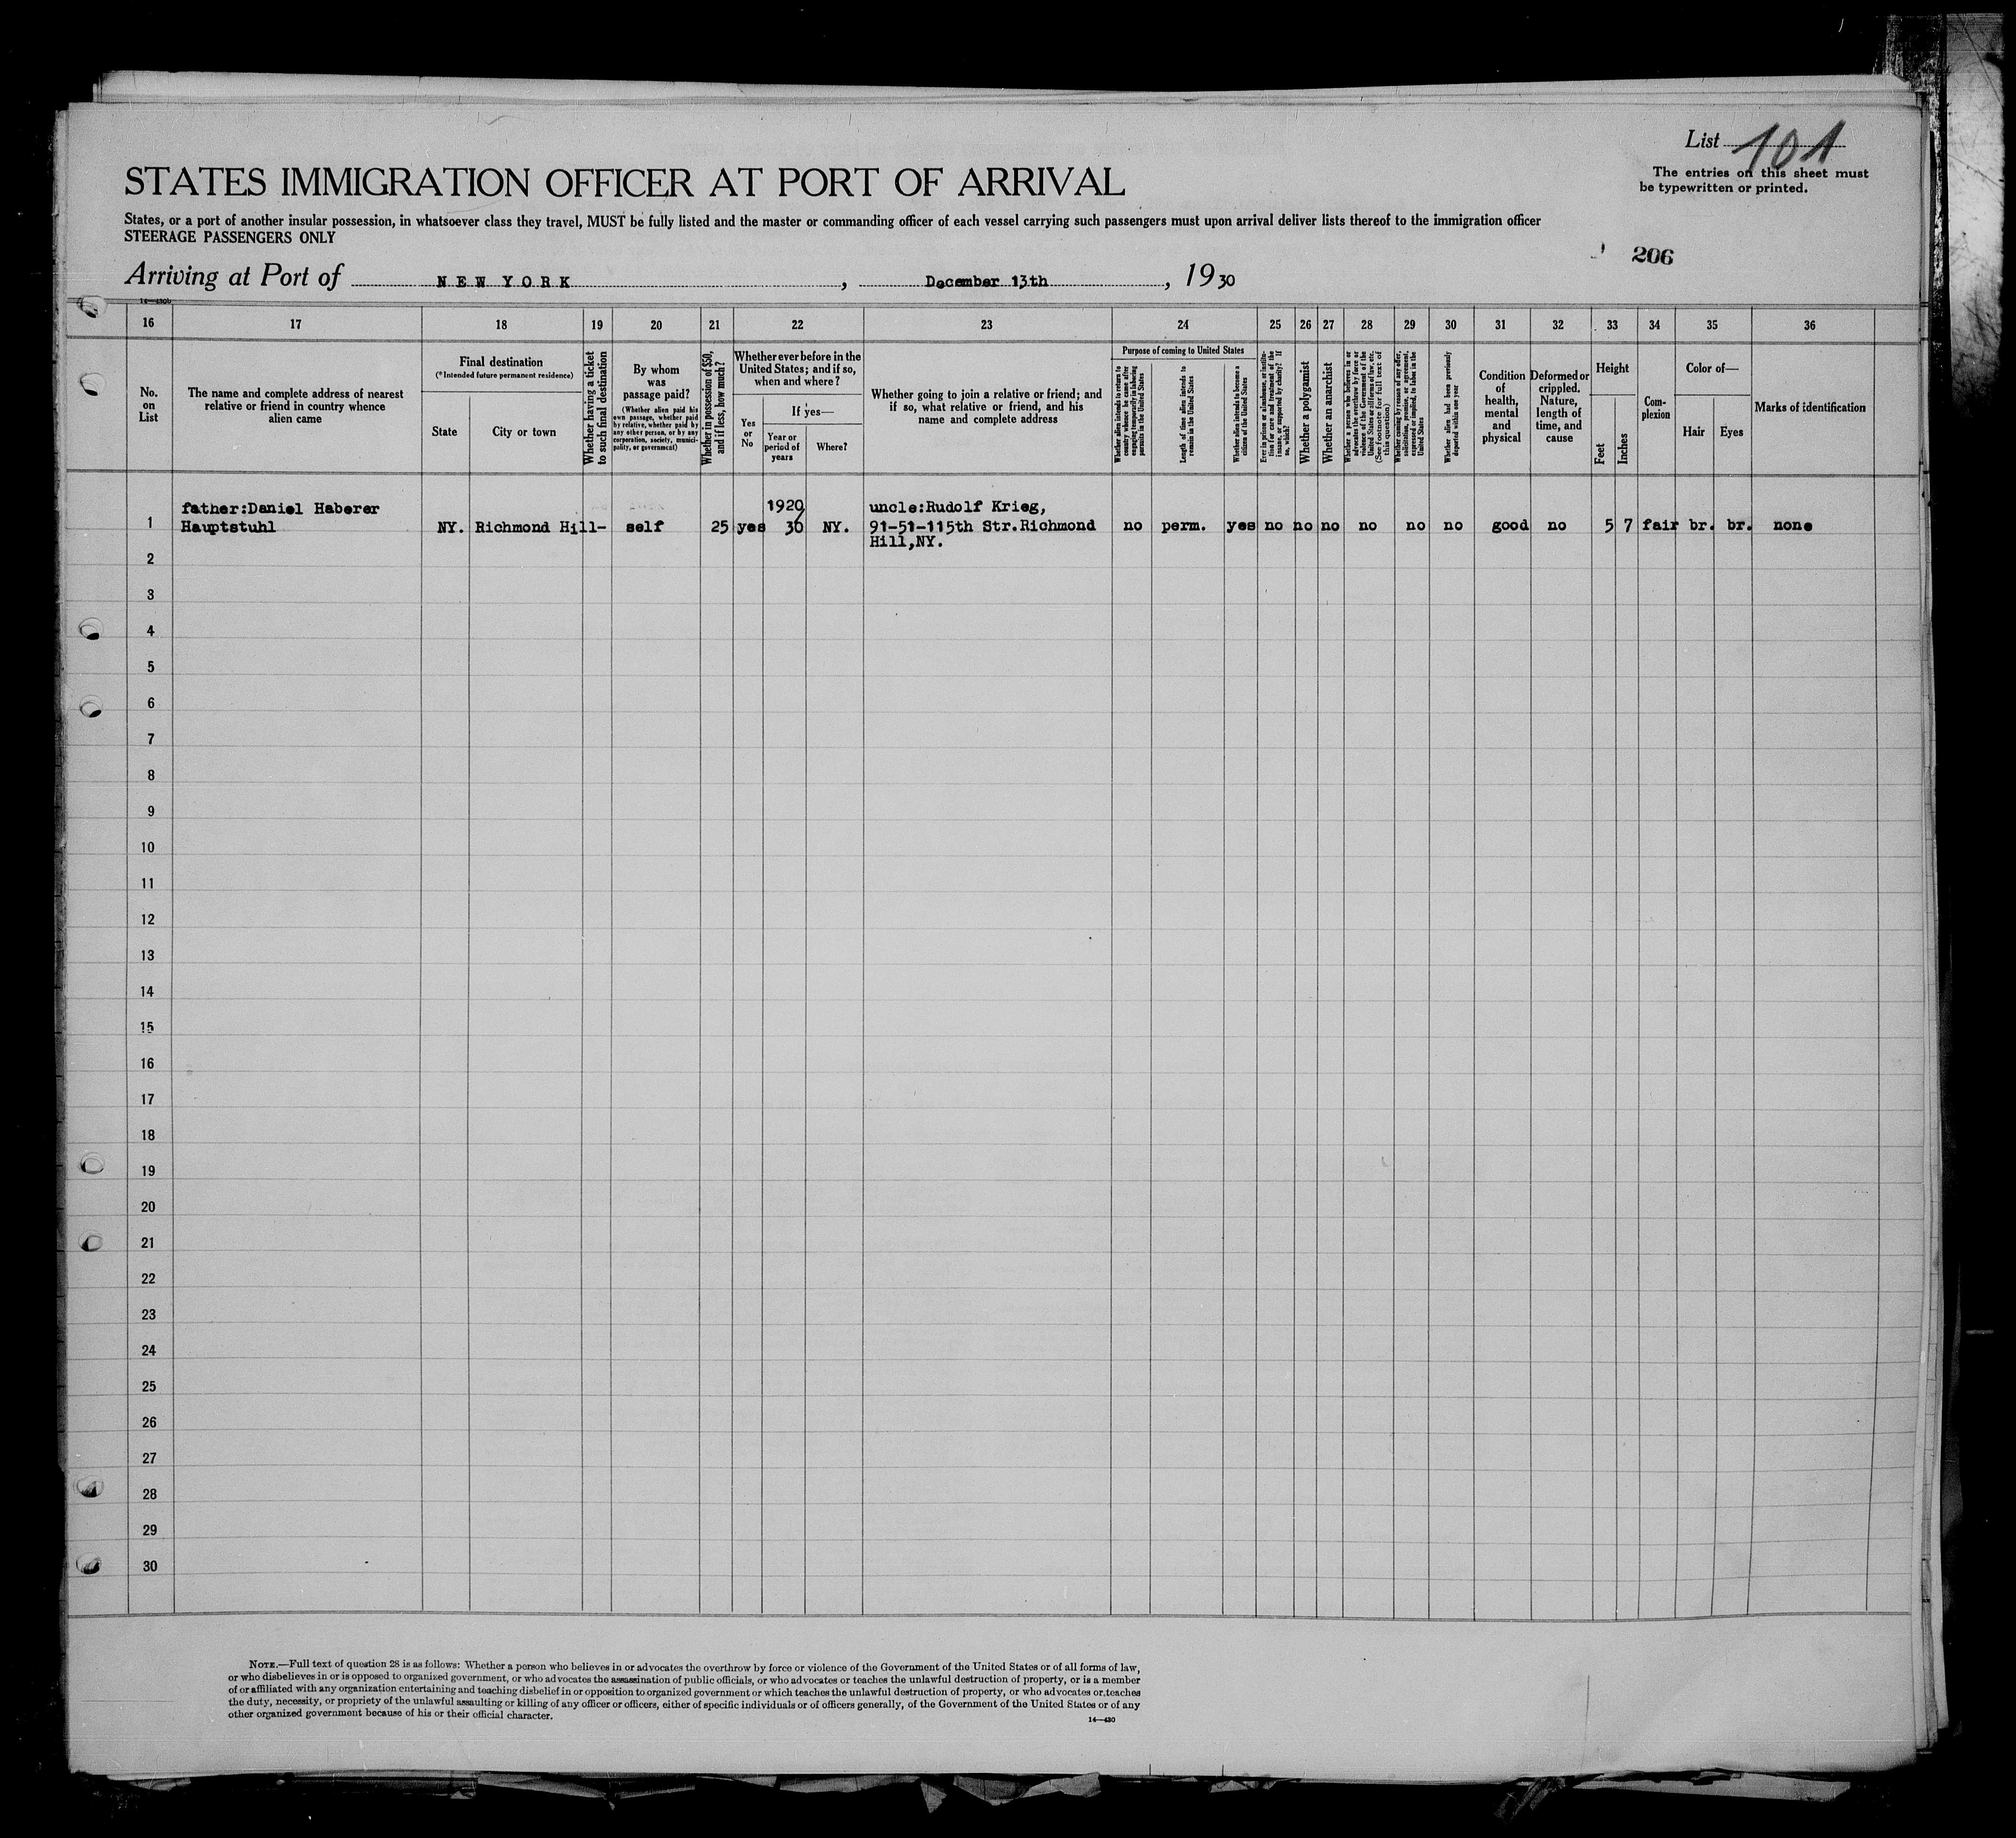 List 101
The entries on this sheet must
be typewritten or printed.
STATES IMMIGRATION OFFICER AT PORT OF ARRIVAL
States, or a port of another insular possession, in whatsoever class they travel, MUST be fully listed and the master or commanding officer of each vessel carrying such passengers must upon arrival deliver lists thereof to the immigration officer
STEERAGE PASSENGERS ONLY
206
Arriving at Port of NEW YORK, December 13th, 1930
14—430b
16 17 18 19 20 21 22 23 24 25 26 27 28 29 30 31 32 33 34 35 36
No.
on
List
The name and complete address of nearest
relative or friend in country whence
alien came
Final destination
(*Intended future permanent residence)
State
City or town
Whether having a ticket
to such final destination
By whom
was
passage paid?
(Whether alien paid his
own passage, whether paid
by relative, whether paid by
any other person, or by any
corporation, society, munici-
pality, or government)
Whether in possession of $50,
and if less, how much?
Whether ever before in the
United States; and if so,
when and where?
Yes
or
No
If yes—
Year or
period of
years
Where?
Whether going to join a relative or friend; and
if so, what relative or friend, and his
name and complete address
Purpose of coming to United States
Whether alien intends to return to
country whence he came after
engaging temporarily in laboring
pursuits in the United States
Length of time alien intends to
remain in the United States
Whether alien intends to become a
citizen of the United States
Ever in prison or almshouse, or institu-
tion for care and treatment of the
insane, or supported by charity? If
so, which?
Whether a polygamist
Whether an anarchist
Whether a person who believes in or
advocates the overthrow by force or
violence of the Government of the
United States or all forms of law, etc.
(See footnote for full text of
this question)
Whether coming by reason of any offer,
solicitation, promise, or agreement,
expressed or implied, to labor in the
United States
Whether alien had been previously
deported within one year
Condition
of
health,
mental
and
physical
Deformed or
crippled.
Nature,
length of
time, and
cause
Height
Feet
Inches
Com-
plexion
Color of—
Hair
Eyes
Marks of identification
father:Daniel Haberer 1920 uncle:Rudolf Krieg,
1 Hauptstuhl NY. Richmond Hill- self 25 yes 30 NY. 91-51-115th Str.Richmond no perm. yes no no no no no no good no 5 7 fair br. br. none
Hill,NY.
2
3
4
5
6
7
8
9
10
11
12
13
14
15
16
17
18
19
20
21
22
23
24
25
26
27
28
29
30
NOTE.—Full text of question 28 is as follows: Whether a person who believes in or advocates the overthrow by force or violence of the Government of the United States or of all forms of law,
or who disbelieves in or is opposed to organized government, or who advocates the assassination of public officials, or who advocates or teaches the unlawful destruction of property, or is a member
of or affiliated with any organization entertaining and teaching disbelief in or opposition to organized government or which teaches the unlawful destruction of property, or who advocates or teaches
the duty, necessity, or propriety of the unlawful assaulting or killing of any officer or officers, either of specific individuals or of officers generally, of the Government of the United States or of any
other organized government because of his or their official character.
14—430